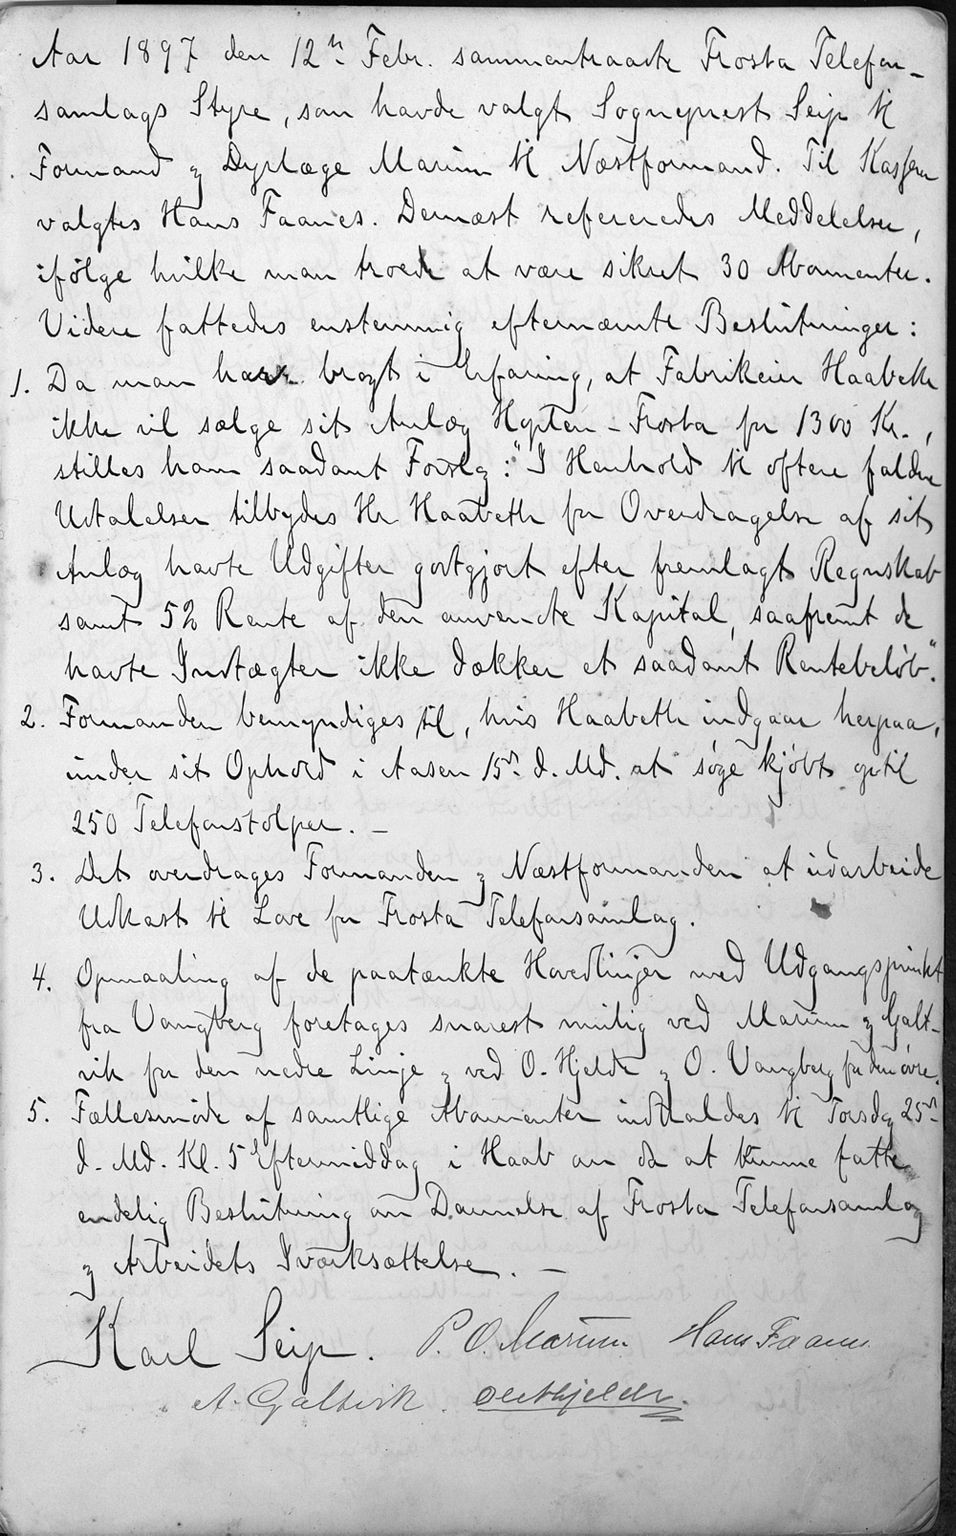 Aar 1897 den 12te Febr. sammentraadte Frosta Telefon-
samlags Styre, som havde valgt Sogneprest Seip til
Formand og Dyrlæge Marium til Næstformand. Til Kasserer
valgtes Hans Faanes. Dernæst refereredes Meddelelser,
ifølge hvilke man troede at være sikret 30 Abonnenter.
Videre fattedes enstemmig efternævnte Beslutninger:
1. Da man har bragt i Erfaring, at Fabrikeier Haabeth
ikke vil sælge sit Anlæg Hopten - Frosta for 1300 Kr.,
stilles ham saadant Forslag: "I Henhold til oftere faldne
Udtalelser tilbydes Hr Haabeth for Overdragelse af sit
Anlæg havte Udgifter godtgjort efter fremlagt Regnskab
samt 5% Rente af den anvendte Kapital, saafremt de
havte Indtægter ikke dækker et saadant Rentebeløb."
2. Formanden bemyndiges til, hvis Haabeth indgaar herpaa,
under sit Ophold i Aasen 15de d. Md. at søge kjøbt optil
250 Telefonstolper. –
3. Det overdrages Formanden og Næstformanden at udarbeide
Udkast til Love for Frosta Telefonsamlag.
4. Opmaaling af de paatænkte Hovedlinjer med Udgangspunkt
fra Vangberg foretages snarest mulig ved Marium og Galt-
vik for den nedre Linje og ved O. Hjelde og O. Vangberg for den øvre.
5. Fællesmøde af samtlige Abonnenter indkaldes til Torsdag 25de
d. Md. Kl. 5 Eftermiddag i Haab om da at kunne fatte
endelig Beslutning om Dannelse af Frosta Telefonsamlag
og Arbeidets Iværksættelse. –
Karl Seip. P. O. Marium Hans Faanes
A. Galtvik. Ole Hjelde.